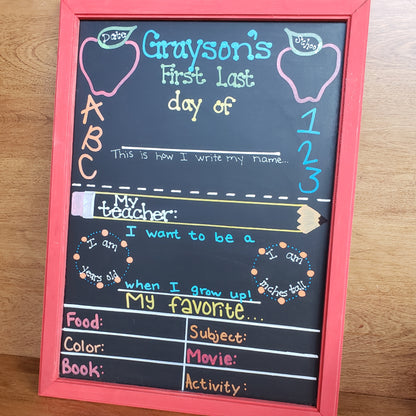 Date
Grayson's
First Last
day of
A
B
C
1
2
3
This is how I write my name...
My
teacher:
I want to be a
I am
years old
I am
inches tall
when I grow up!
My favorite...
Food:
Subject:
Color:
Movie:
Book:
Activity: